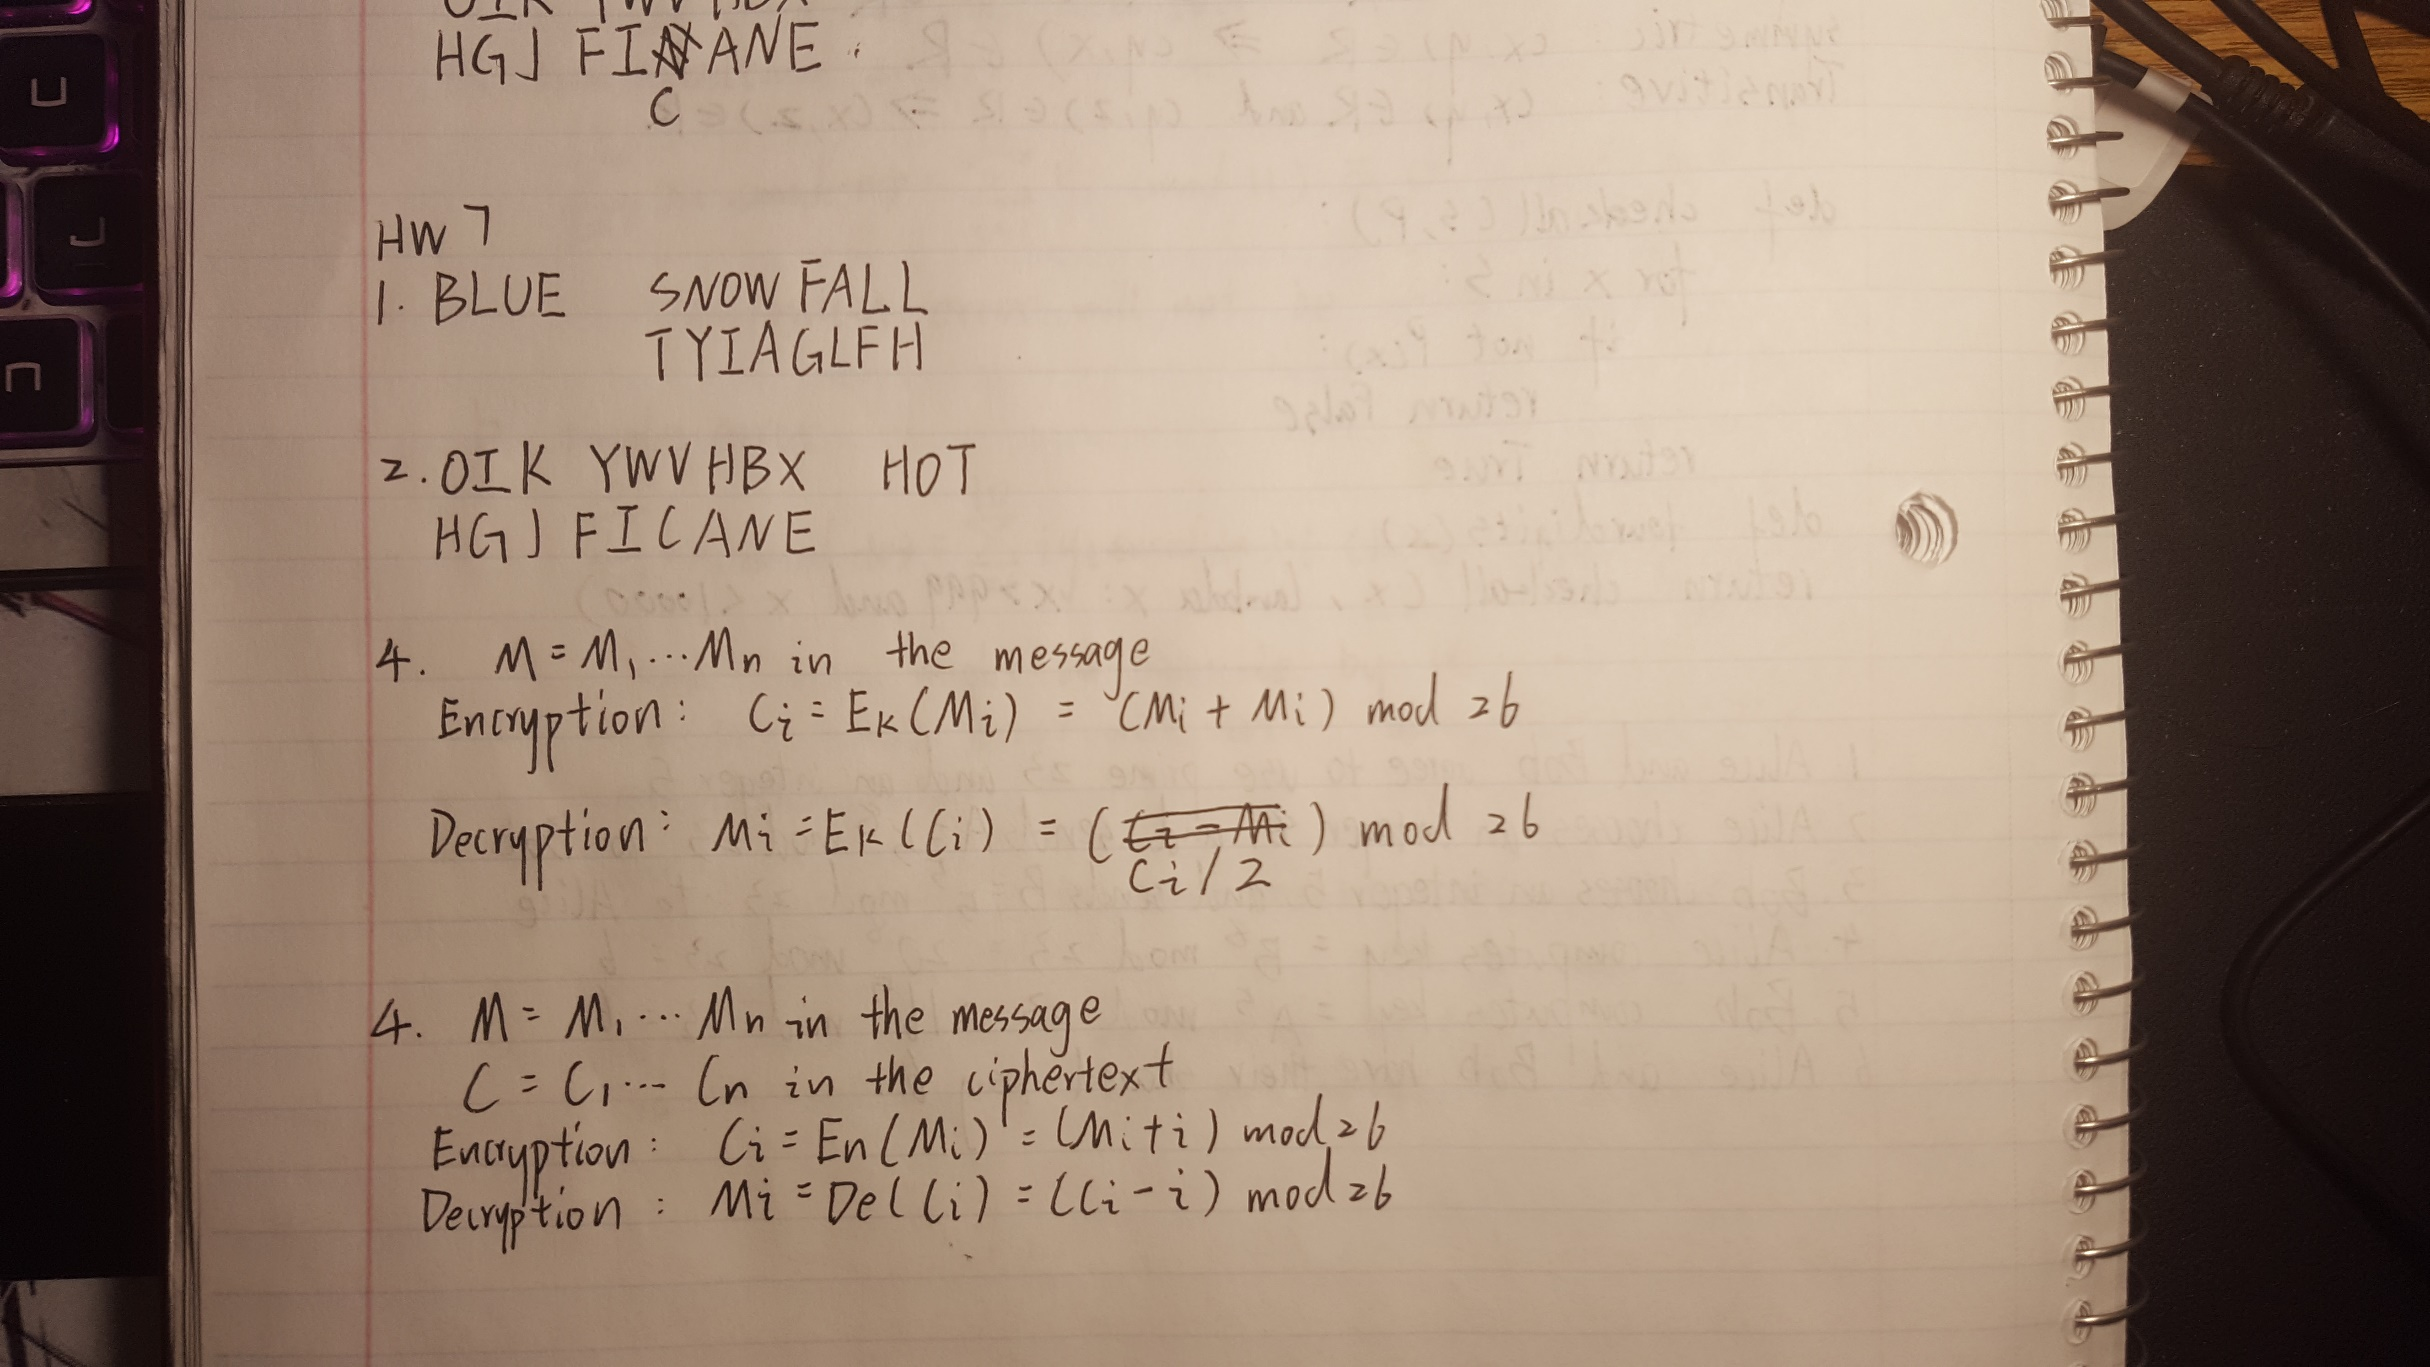 OIK YWVHBX
HGJ FICANE.
HW 7
1. BLUE SNOWFALL
TYIAGLFH
2. OIK YWVHBX HOT
HGJ FICANE
4. M = M1...Mn in the message
Encryption: Ci = EK(Mi) = (Mi + Mi) mod 26
Decryption: Mi = EK(Ci) = (Ci/2) mod 26
4. M = M1...Mn in the message
C = C1... Cn in the ciphertext
Encryption: Ci = En(Mi) = (Mi+i) mod 26
Decryption: Mi = De(Ci) = (Ci-i) mod 26